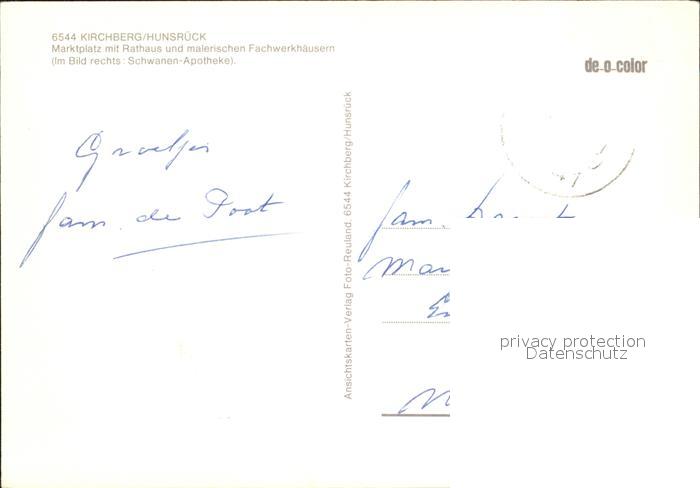 6544 KIRCHBERG/HUNSRÜCK
Marktplatz mit Rathaus und malerischen Fachwerkhäusern
(Im Bild rechts: Schwanen-Apotheke).
de-o-color
Groetjes
fam. de Poot
Ansichtskarten-Verlag Foto-Reuland, 6544 Kirchberg/Hunsrück
fam.
privacy protection
Datenschutz